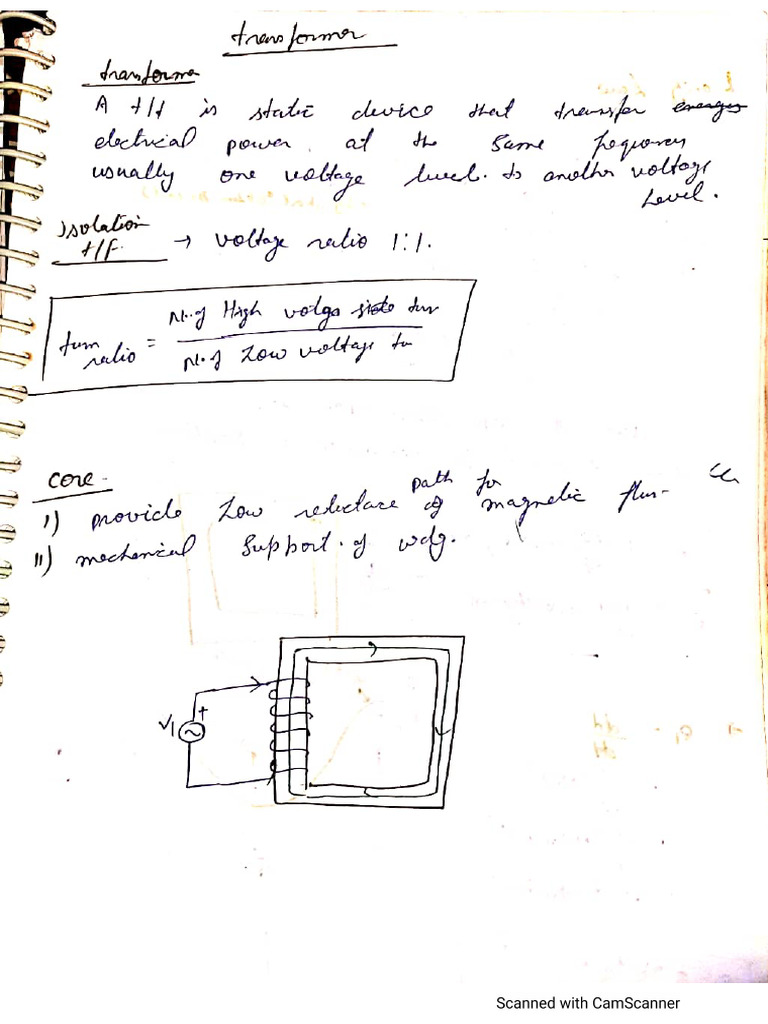 transformer
transforma
A t/f is static device that transfer energy
electrical power. at the same frequency
usually one voltage level. to another voltage
Level.
isolation
t/f. → voltage ratio 1:1.
turn ratio = No. of High voltge side tur
No. of Low voltage tu
Core -
path for
1) provide Low reluctace of magnetic flux-
11) mechanical Support. of wdg.
V1
+
Scanned with CamScanner